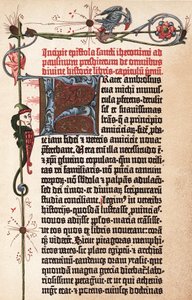 Incipit epistola sancti iheronimi ad
paulinum presbiterum de omnibus
divine historie libris·capitulū pmū.
Frater ambrosius
tua michi munus-
cula pferens·detulit
sil et suavissimas
lras·q a principio
amiciciarū·fidē pba-
te iam fidei et veteris amicicie nova
pferebant. Vera eni illa necessitudo ē·
et xpi glutino copulata·qm non vtili-
tas rei familiaris·nō pncia tantum
corporū·nō sbdola et palpās adulacō·
sed dei timor·et divinarū scripturarū
studia conciliant. Legim in veterib
historijs·quosdā lustrasse puīcias·
novos adijsse plos·maria trāsisse·
ut eos quos ex libris noverant: corā q
viderēt. Sicut pitagoras memphi-
ticos vates·sic plato egiptū·et archita
tarentinū·eandemq oram ytalie·que
quondā magna grecia dicebat·labo-
riosissime peragvit: et ut qui athenis
mgr erat·et potens·cuiusq doctrinas